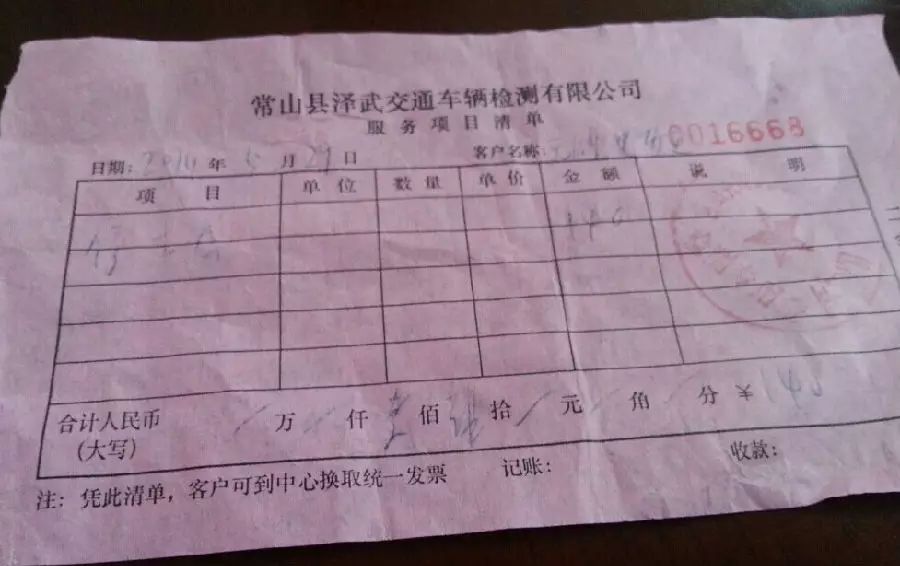 常山县泽武交通车辆检测有限公司
服务项目清单
日期: 年 月 29 日 客户名称: 0016668
项目 单位 数量 单价 金额 说明
140
合计人民币 万 仟 壹 佰 肆 拾 元 角 分 ¥ 140
(大写)
注: 凭此清单，客户可到中心换取统一发票 记账: 收款: